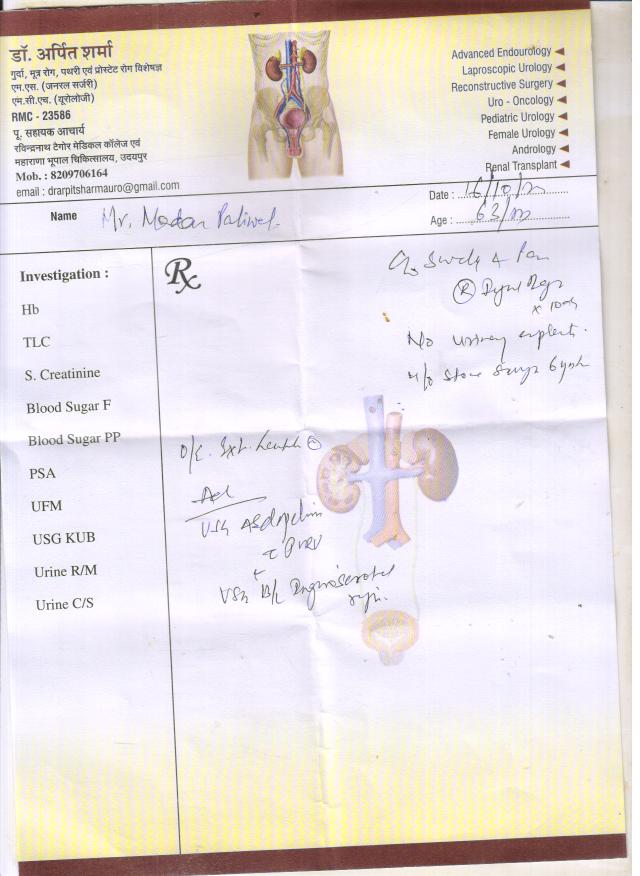 डॉ. अर्पित शर्मा
गुर्दा, मूत्र रोग, पथरी एवं प्रोस्टेट रोग विशेषज्ञ
एम.एस. (जनरल सर्जरी)
एम.सी.एच. (यूरोलोजी)
RMC - 23586
पू. सहायक आचार्य
रविन्द्रनाथ टैगोर मेडिकल कॉलेज एवं
महाराणा भूपाल चिकित्सालय, उदयपुर
Mob. : 8209706164
email : drarpitsharmauro@gmail.com
Advanced Endourology
Laproscopic Urology
Reconstructive Surgery
Uro - Oncology
Pediatric Urology
Female Urology
Andrology
Renal Transplant
Date : 16/10/
Age : 63/
Name Mr. Madan Paliwal
Investigation :
Rx
Hb
TLC
S. Creatinine
Blood Sugar F
Blood Sugar PP
PSA
UFM
USG KUB
Urine R/M
Urine C/S
C/o Swelling & Pain
(R)
x 10
No urinary
H/o Stone
O/E. Ext.
Adv
USG
PVRV
+
USG B/L Inguinoscrotal